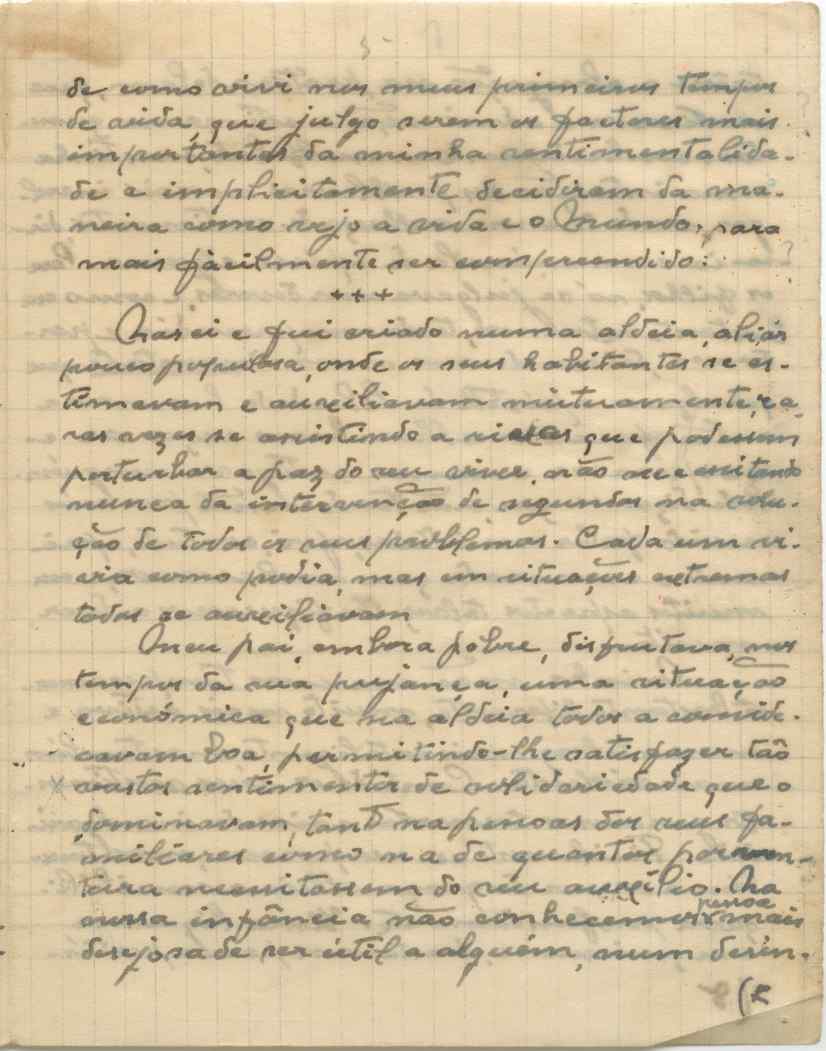 5
de como vivi nos meus primeiros tempos
de vida, que julgo serem os factores mais
importantes da minha sentimentalida-
de e implicitamente decidirem da ma-
neira como vejo a vida e o Mundo, para
mais fàcilmente ser compreendido:
+++
Nasci e fui criado numa aldeia, aliás
pouco populosa, onde os seus habitantes se es-
timavam e auxiliavam mùtuamente, ra-
ras vezes se assistindo a rixas que podessem
perturbar a paz do seu viver, não necessitando
nunca da intervenção de segundos na solu-
ção de todos os seus problemas. Cada um vi-
via como podia, mas em situações extremas
todos se auxiliavam
Meu pai, embora pobre, disfrutava, nos
tempos da sua pujança, uma situação
económica que na aldeia todos a consid-
eravam boa, permitindo-lhe satisfazer tão
vastos sentimentos de solidariedade que o
dominavam, tanto na pessoas dos seus fa-
miliares como na de quantos porven-
tura necessitassem do seu auxílio. Na
nossa infância não conhecemos pessoa mais
desejosa de ser útil a alguém, num desin-